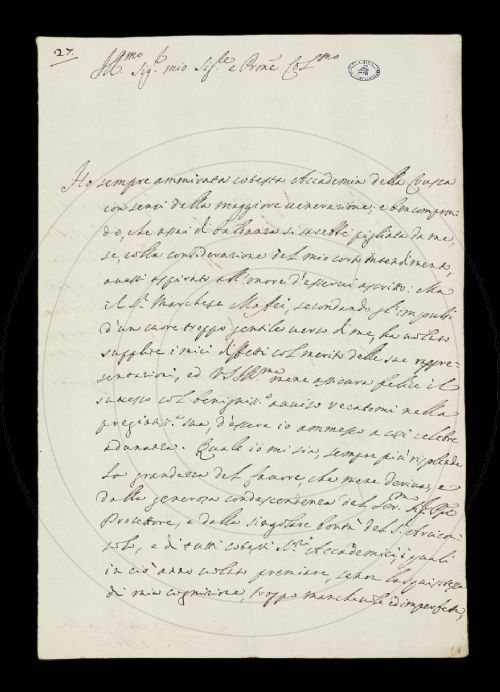 27.
Ill.mo Sig.r mio Sig.re e Prone Col.mo
Ho sempre ammirata cotesta Accademia della Crusca
con sensi della maggiore venerazione; e ben compren=
do, che assai di baldanza si sarebbe pigliata da me,
se, colla considerazione del mio corto intendimento,
avessi aspirato all'onore d'esservi ascritto: Ma
il S.r Marchese Maffei, secondando gl'impulsi
d'un cuore troppo gentile verso di me, ha voluto
supplire i miei difetti col merito delle sue rappre=
sentazioni, ed VS Ill.ma me ne assicura felice il
successo col benigniss.o avviso recatomi nella
pregiatiss.a sua, d'essere io ammesso a così celebre
adunanza. Quale io mi sia, sempre più risplende
la grandezza del favore, che me ne deriva, e
dalla generosa condescendenza del Ser.mo
Protettore, e dalla singolare bontà del S.r Arcicon=
solo, e di tutti cotesti SS.ri Accademici, i quali
in ciò anno voluto premiare, senon la squisitezza
di mia cognizione, troppo manchevole ed imperfetta,